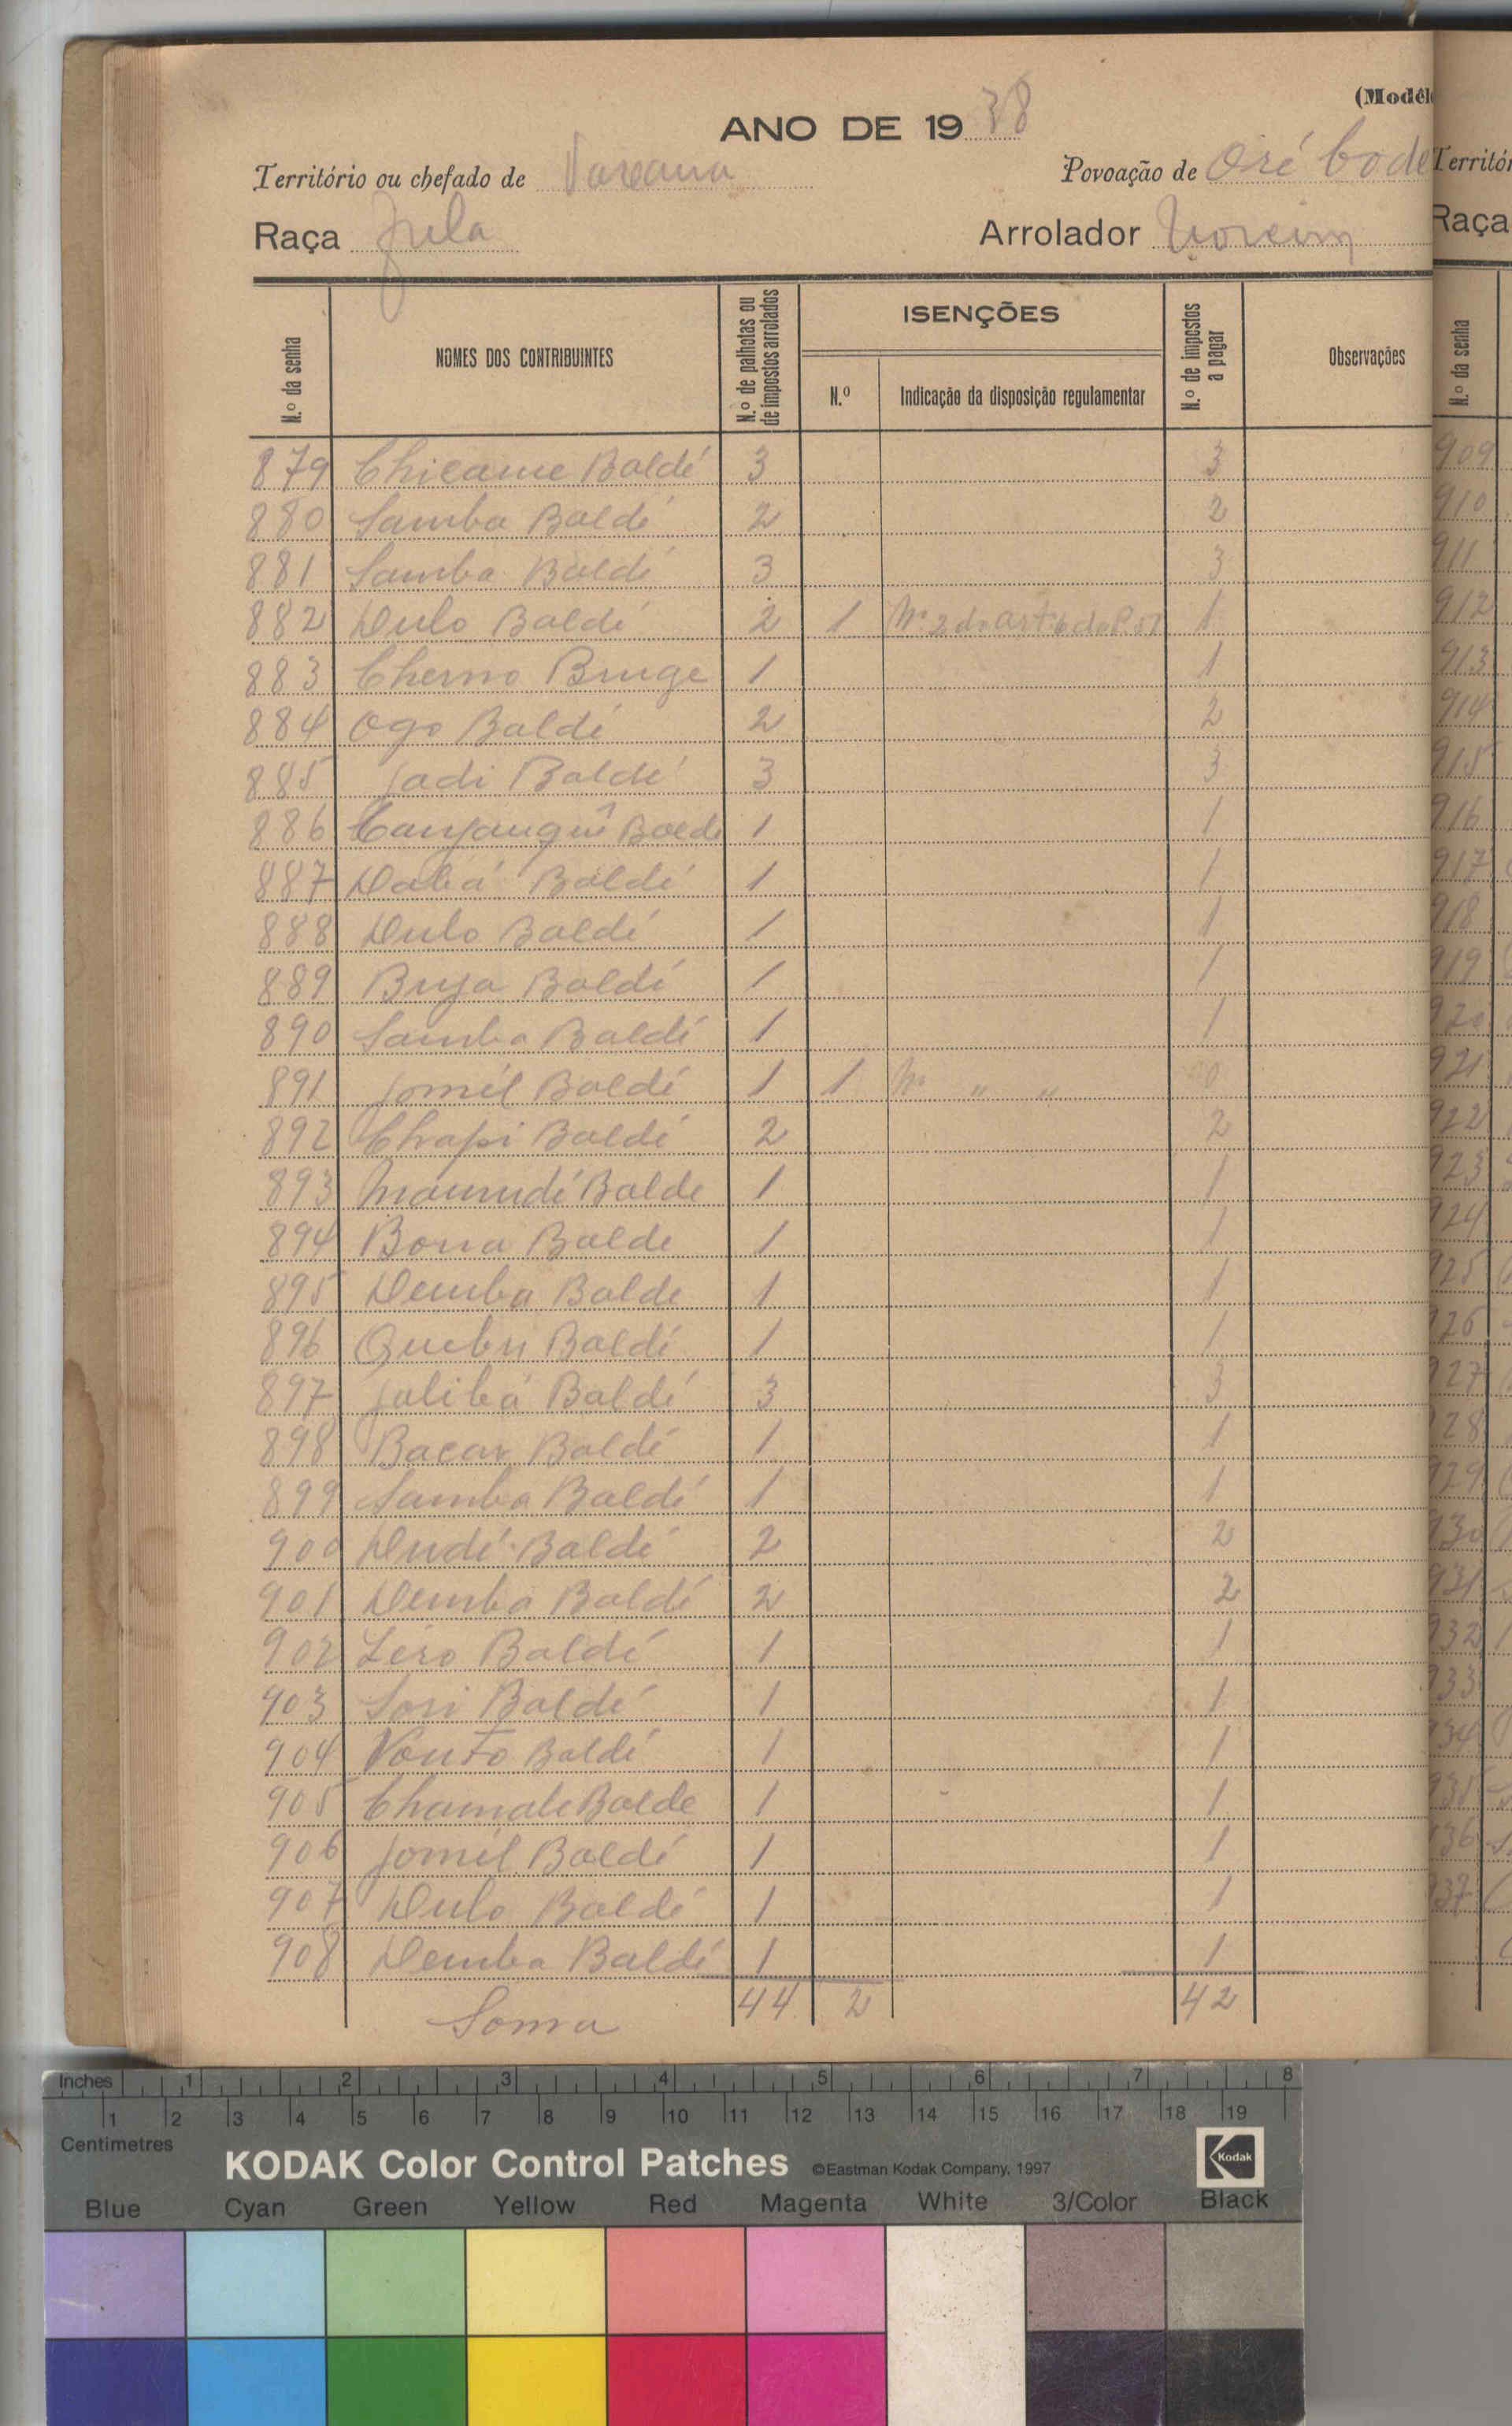 (Modêl
ANO DE 1938
Território ou chefado de
Povoação de Oré bode
Raça Fula
Arrolador
N.º da senha
NOMES DOS CONTRIBUINTES
N.º de palhotas ou de impostos arrolados
ISENÇÕES
N.º
Indicação da disposição regulamentar
N.º de impostos a pagar
Observações
879 Baldé 3 3
880 Samba Baldé 2 2
881 Samba Baldé 3 3
882 Dulo Baldé 2 1 Nº 2 do art 6 do 1
883 Cherno 1 1
884 Ogo Baldé 2 2
885 Jadi Baldé 3 3
886 Baldé 1 1
887 Baldé 1 1
888 Dulo Baldé 1 1
889 Baldé 1 1
890 Samba Baldé 1 1
891 Jomél Baldé 1 1 Nº " " 0
892 Baldé 2 2
893 Balde 1 1
894 Balde 1 1
895 Demba Balde 1 1
896 Baldé 1 1
897 Baldé 3 3
898 Bacar Baldé 1 1
899 Samba Baldé 1 1
900 Baldé 2 2
901 Demba Baldé 2 2
902 Baldé 1 1
903 Sori Baldé 1 1
904 Baldé 1 1
905 Balde 1 1
906 Jomél Baldé 1 1
907 Dulo Baldé 1 1
908 Demba Baldé 1 1
Soma 44 2 42
Territór
Raça
N.º da senha
909
910
911
912
913
914
915
916
917
918
919
920
921
922
923
924
925
926
927
928
929
930
931
932
933
934
935
936
937
Inches 1 2 3 4 5 6 7 8
1 2 3 4 5 6 7 8 9 10 11 12 13 14 15 16 17 18 19
Centimetres
KODAK Color Control Patches ©Eastman Kodak Company, 1997 Kodak
Blue Cyan Green Yellow Red Magenta White 3/Color Black